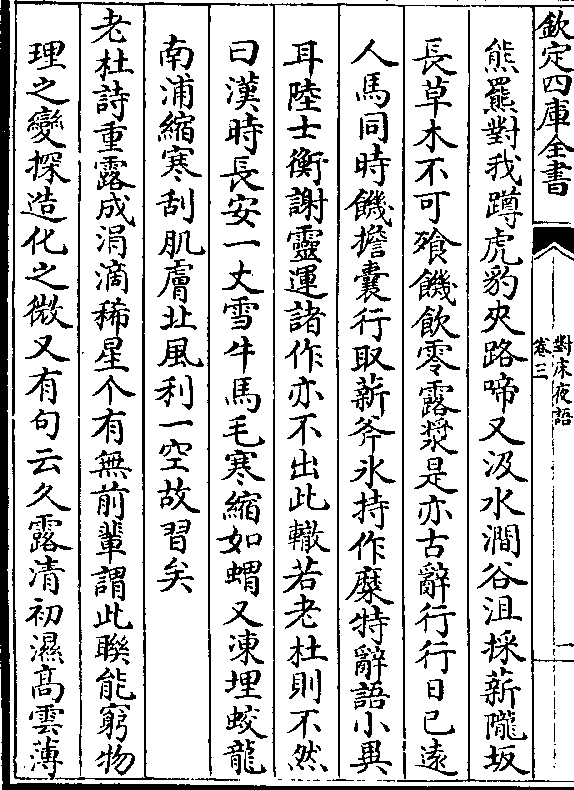 欽定四庫全書
對床夜語
卷三
一
熊羆對我蹲虎豹夾路啼又汲水澗谷沮採薪隴坂
長草木不可飱饑飲零露漿是亦古辭行行日已遠
人馬同時饑擔囊行取薪斧氷持作糜特辭語小異
耳陸士衡謝靈運諸作亦不出此轍若老杜則不然
曰漢時長安一丈雪牛馬毛寒縮如蝟又凍埋蛟龍
南浦縮寒刮肌膚北風利一空故習矣
老杜詩重露成涓滴稀星乍有無前輩謂此聨能窮物
理之變探造化之微又有句云久露清初濕髙雲薄